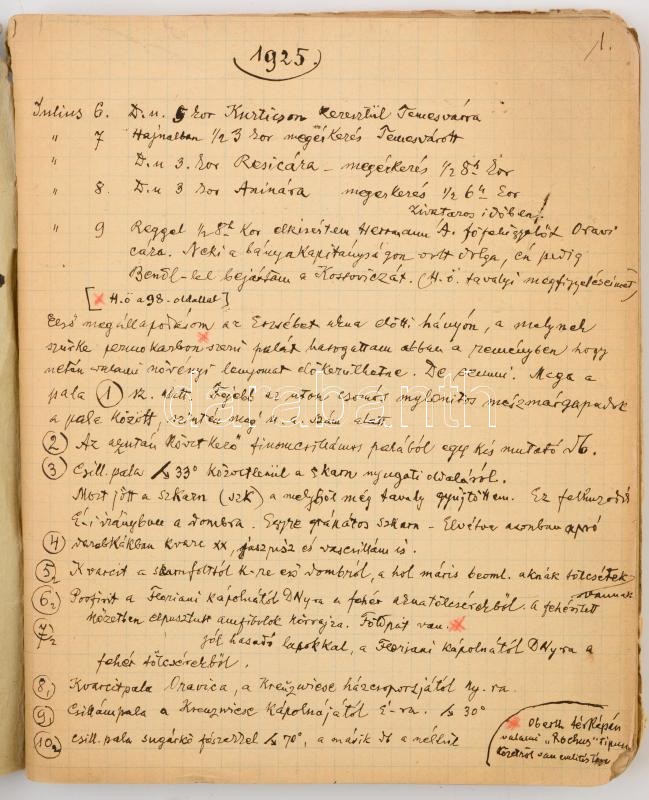 1.
1925.
Julius 6. D.u. 5 kor Kurticson keresztül Temesvárra
" 7 Hajnalban 1/2 3 kor megérkezés Temesvárott
" D.u 3. kor Resicára - megérkezés 1/2 8h kor
" 8. D.u 3 kor Aninára megérkezés 1/2 6h kor
Zivataros időben!
" 9 Reggel 1/2 8 kor elkisértem Herrmann A. főfelügyelőt Oravi
cára. Neki a bányakapitányságon volt dolga, én pedig
-lel bejártam a Kossoviczát. (H.ö. tavalyi megfigyeléseimet)
[x H.ö a 98. oldallal]
Első megállapodásom az Erzsébet akna előtti hányón, a melynek
szürke permokarbon szerü palát hasogattam abban a reményben hogy
netán valami növényi lenyomat előkerülhetne. De semmi. Maga a
pala 1 sz. alatt. Feljebb az uton csomós mylonitos mészmárgapadok
a pala között, szintén még u. a. szám alatt.
2 Az azután következő finomcsillámos palából egy kis mutató db.
3 Csill. pala ↘ 33° közvetlenül a skarn nyugati oldaláról.
Most jött a szkarn (szk) a melyből még tavaly gyüjtöttem. Ez felhuzódik
É-i irányban a dombra. Egyre gránátos szkarn - Elvétve azonban apró
4 darabkákban kvarc xx, jaszpisz és vascsillám is.
5 2 Kvarcit a skarnfolttól K-re eső dombról, a hol máris beoml. aknák tölcsérek
vannak
6 2 Porfirit a Floriani kápolnától DNy ra a fehér aknatölcsérekből. A fehérített
kőzetben elpusztult amfibolok körrajza. Földpát van. x
7 2 jól hasadó lapokkal, a Floriani kápolnától DNy ra a
fehér tölcsérekből.
8 1 Kvarcitpala Oravica, a Kreuzwiese házcsoportjától Ny. ra.
9 1 Csillámpala a Kreuzwiese kápolnájától É-ra. ↘ 30°
10 2 csill. pala sugárkő fészekkel ↘ 70°, a másik db a nélkül
x Oberth térképén
valami "Rochus" tipusu
kőzetről van említés téve
darabanth